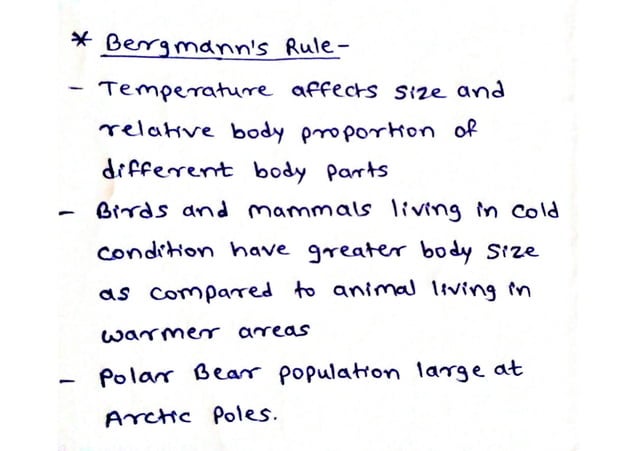 * Bergmann's Rule-
- Temperature affects size and
relative body proportion of
different body parts
- Birds and mammals living in cold
condition have greater body size
as compared to animal living in
warmer areas
- Polar Bear population large at
Arctic Poles.